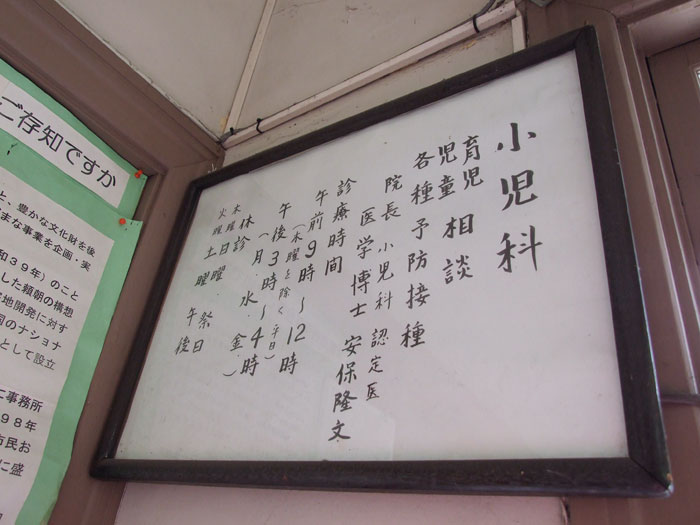 小児科
育児
児童 相談
各種予防接種
院長 小児科 認定医
医学博士 安保隆文
診療時間
午前9時〜12時
（木曜を除く平日）
午後3時〜4時
（月・水・金）
休診
木曜
日曜 祭日
火曜 土曜 午後
ご存知ですか
と、豊かな文化財を後
まな事業を企画・実
和39年）のこと
した頼朝の構想
地開発に対す
国のナショナ
として設立
二事務所
98年
市民お
に盛